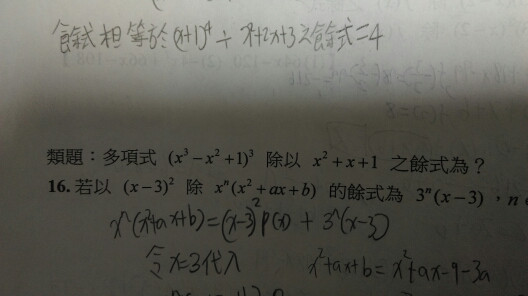 餘式相等於 (x+1)⁴ ÷ x²+2x+3 之餘式=4
類題：多項式 (x³−x²+1)³ 除以 x²+x+1 之餘式為？
16. 若以 (x−3)² 除 xⁿ(x²+ax+b) 的餘式為 3ⁿ(x−3)，n
xⁿ(x²+ax+b)=(x-3)²P(x) + 3ⁿ(x-3)
令x=3代入 x²+ax+b = x²+ax-9-3a